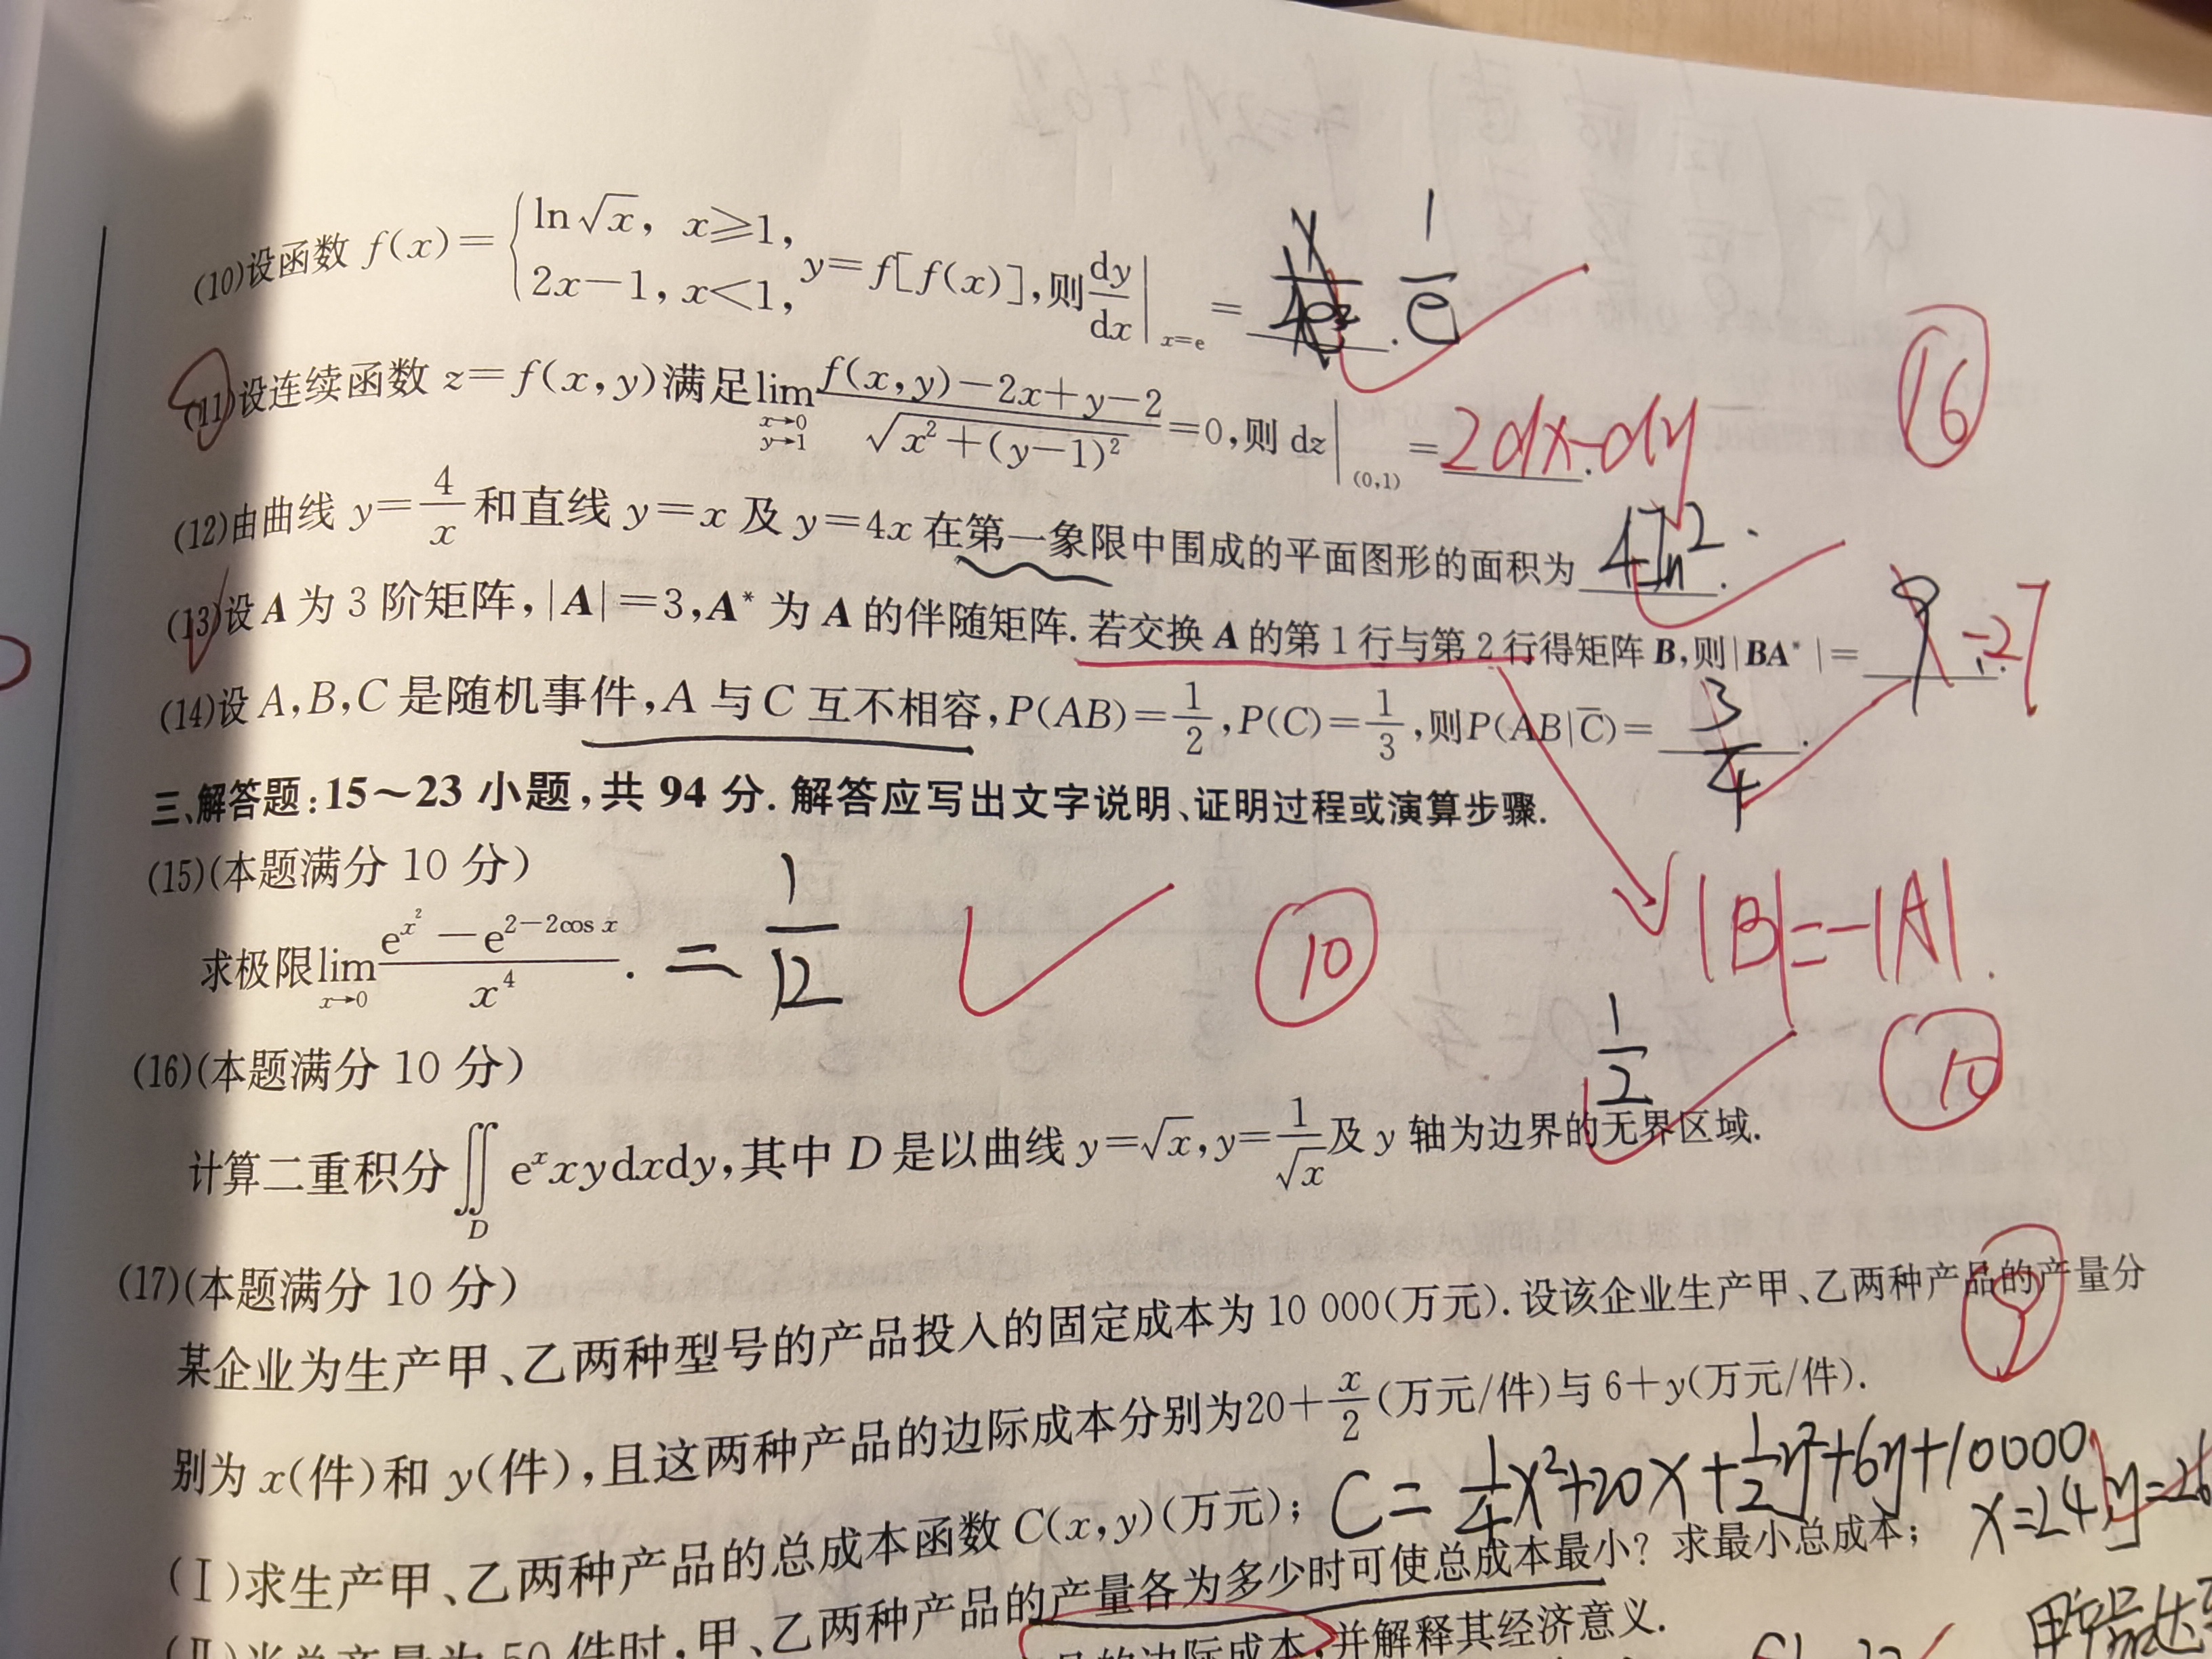 (10)设函数 f(x)={ln√x, x≥1, 2x−1, x<1, y=f[f(x)],则dy/dx|x=e = ____. 1/e
(11)设连续函数 z=f(x,y)满足 lim x→0 y→1 (f(x,y)−2x+y−2)/√(x²+(y−1)²)=0,则 dz|(0,1) = 2dx-dy.
(12)由曲线 y=4/x 和直线 y=x 及 y=4x 在第一象限中围成的平面图形的面积为 4ln2.
(13)设 A 为 3 阶矩阵,|A|=3,A* 为 A 的伴随矩阵.若交换 A 的第 1 行与第 2 行得矩阵 B,则|BA*|= 9 -27
(14)设 A,B,C 是随机事件,A 与 C 互不相容,P(AB)=1/2,P(C)=1/3,则P(AB|C̄)= 3/4.
16
三、解答题:15～23 小题,共 94 分.解答应写出文字说明、证明过程或演算步骤.
(15)(本题满分 10 分)
求极限 lim x→0 (e^(x²)−e^(2−2cos x))/x⁴. = 1/12
10
|B|=-|A|.
(16)(本题满分 10 分)
1/2
10
计算二重积分∬D eˣxydxdy,其中 D 是以曲线 y=√x,y=1/√x及 y 轴为边界的无界区域.
(17)(本题满分 10 分)
某企业为生产甲、乙两种型号的产品投入的固定成本为 10 000(万元).设该企业生产甲、乙两种产品的产量分
9
别为 x(件)和 y(件),且这两种产品的边际成本分别为20+x/2(万元/件)与 6+y(万元/件).
(Ⅰ)求生产甲、乙两种产品的总成本函数 C(x,y)(万元); C=1/4x²+20x+1/2y²+6y+10000
x=24 y=26
(Ⅱ)当总产量为 50 件时,甲、乙两种产品的产量各为多少时可使总成本最小? 求最小总成本;
的边际成本,并解释其经济意义.
甲产品达